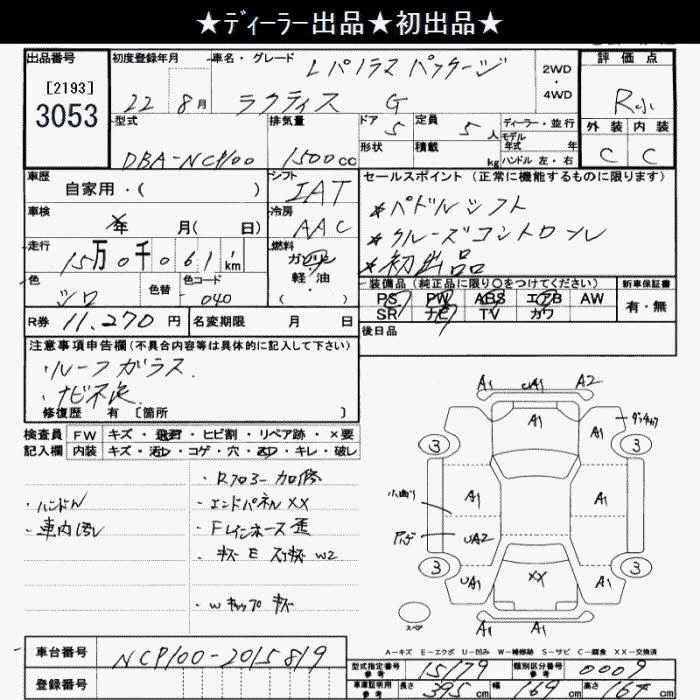 ★ﾃﾞｨｰﾗｰ出品★初出品★
出品番号 初度登録年月 車名・グレード Lパノラマパッケージ 2WD・4WD 評価点
[2193]
3053
22 8月 ラクティス G R小
型式 排気量 ドア 定員 ディーラー・並行 外装 内装
DBA-NCP100 1500cc 5 5人 モデル年式 年 C C
形状 積載 kg ハンドル 左・右
車歴 シフト セールスポイント (正常に機能するものに限ります)
自家用・( ) IAT
★パドルシフト
車検 冷房
年 月( 日) AAC
★クルーズコントロール
走行 燃料
15万0千061km ガソリン
★初出品
軽・油
( )
色 色替 色コード
シロ 040
装備品(純正品に限り○をつけてください) 新車保証書
PS PW ABS エアB AW 有・無
SR ナビ TV カワ
R券 11,270円 名変期限 月 日 後日品
注意事項申告欄(不具合内容等は具体的に記入して下さい)
・ルーフガラス
・ナビ不良
修復歴 有 [箇所 ]
検査員 FW キズ・飛石・ヒビ割・リペア跡・×要
記入欄 内装 キズ・汚レ・コゲ・穴・スレ・キレ・破レ
・Rフロアー加修
・ハンドル ・エンドパネルXX
・車内汚レ ・Fレインホース歪
・キズE スリキズW2
・Wキャップキズ
A1 A1 A2
A1
3 3
小曲り A1 A1
UA2 A1
3 3
UA1 XX A1
A1 A1
スペア
A-キズ E-エクボ U-凹み W-補修跡 S-サビ C-腐食 XX-交換済
車台番号 NCP100-2015819
登録番号
型式指定番号 参考 15179 類別区分番号 参考 0009
車庫証明用 参考 長さ 395cm 幅 169cm 高さ 164cm